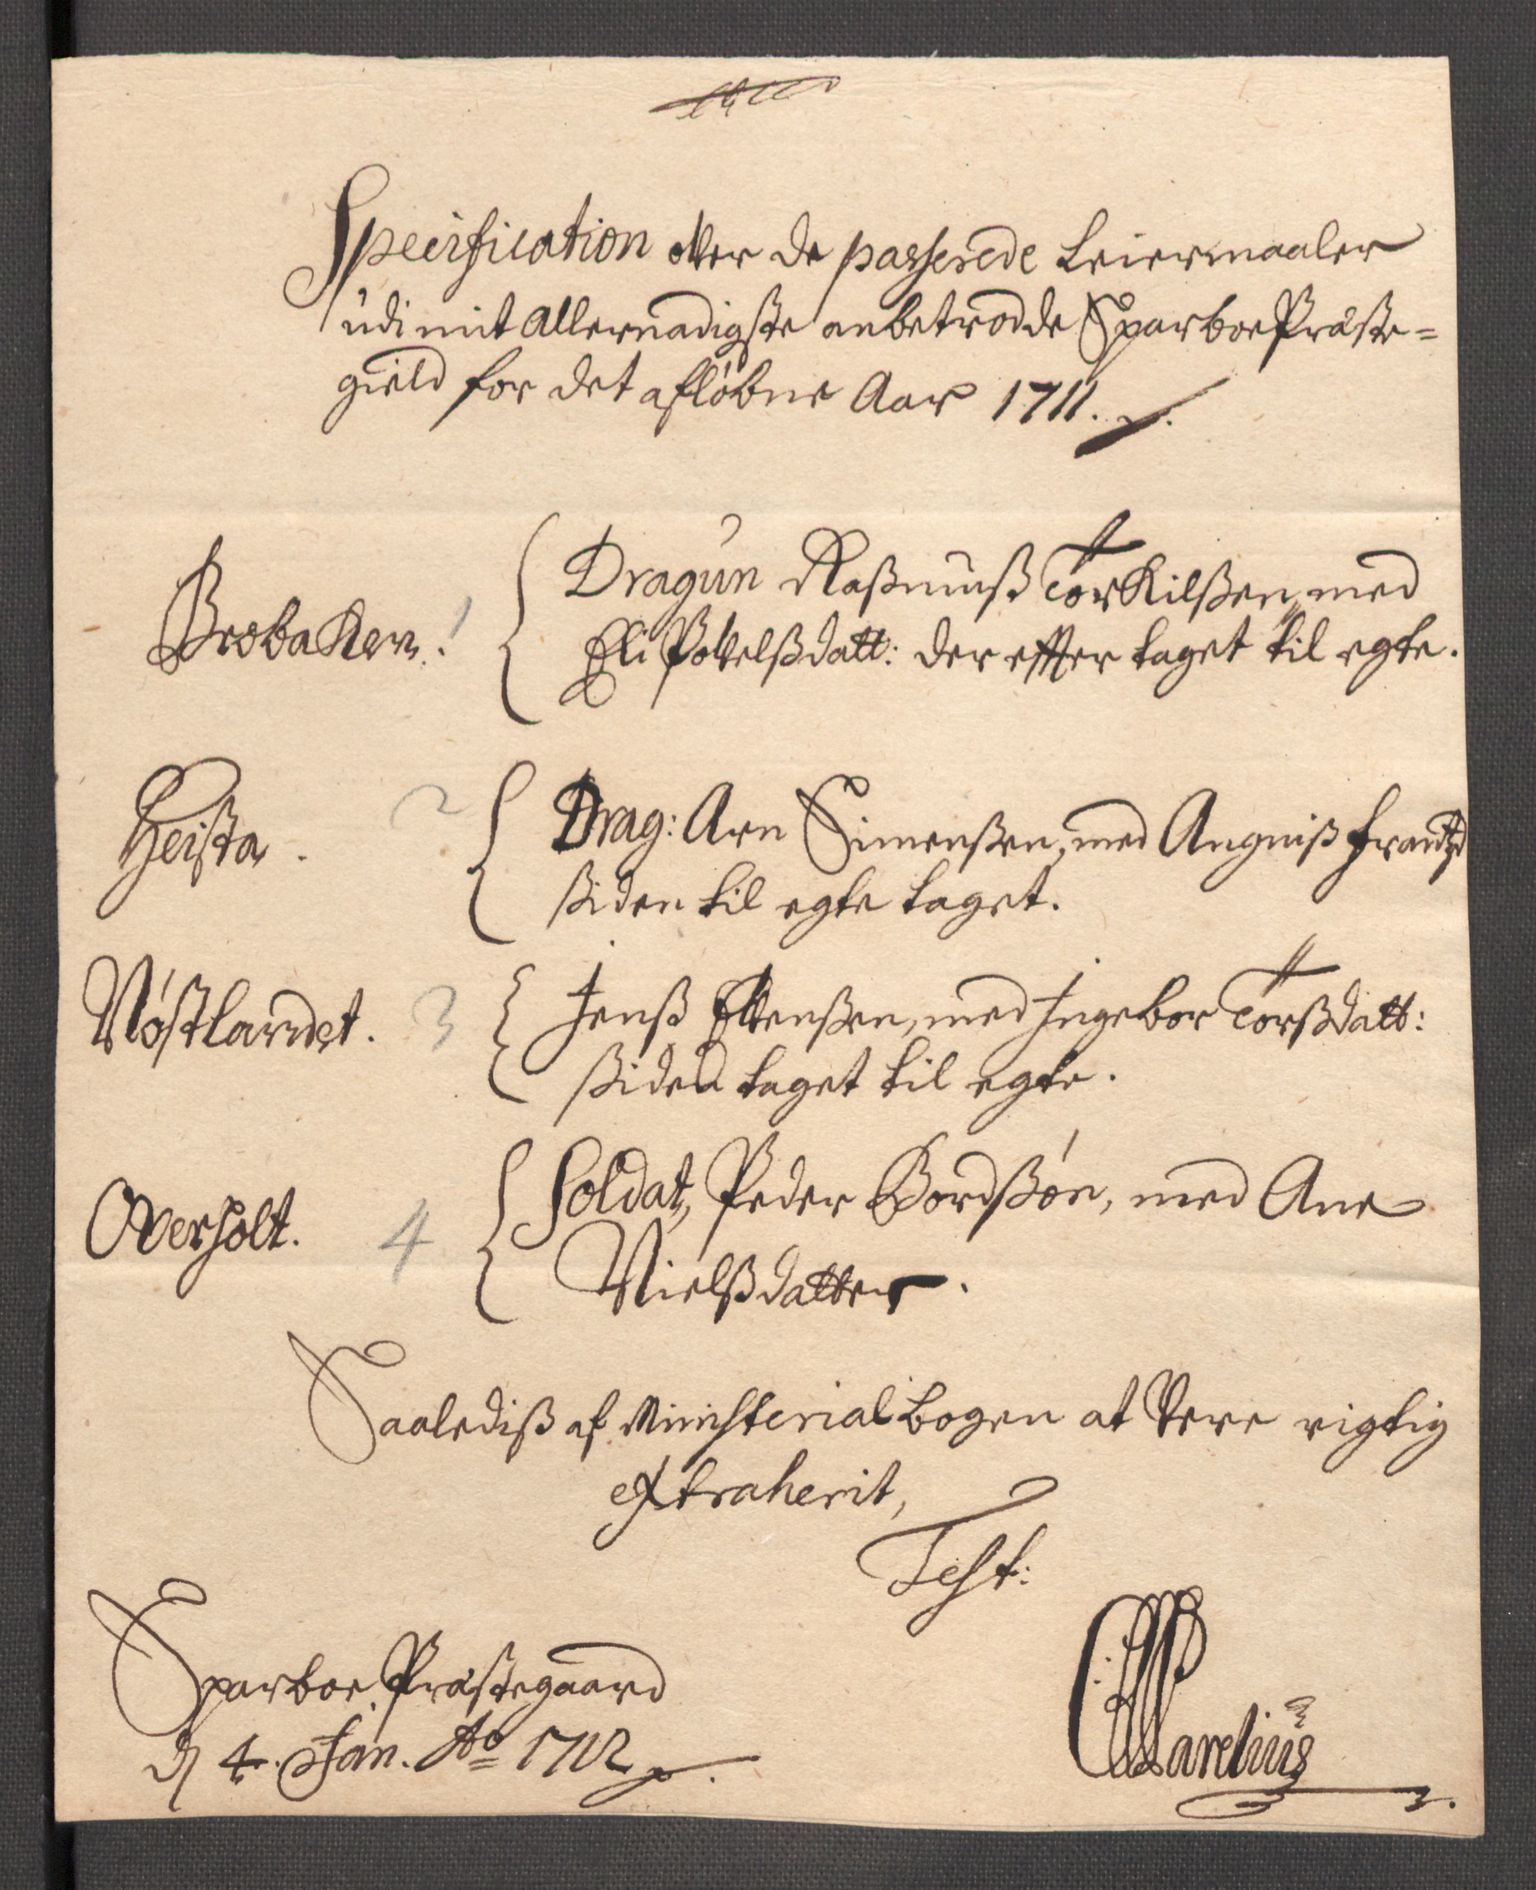 Specification over de passerede Leiermaaler
udi mit Allernadigste anbetrodde Sparboe Præste-
gield for det afløbne Aar 1711.
Brobakken. 1 Dragun Rasmuß Torkilßen, med
Eli Povelßdatt: der effter taget til egte.
Heista. 2 Drag: Arn Simenßen, med Angniß Frantzd
ßiden til egte taget.
Nøstlandet. 3 Jenß Ellenßen, med Ingebor Torßdatt:
ßiden taget til egte.
Overholt. 4 Soldat, Peder Bordßøn, med Ane
Nielßdatter.
Saalediß af Ministerial bogen at Vere rigtig
extraherit,
Test:
Sparboe Præstegaard
d 4. Jan. Ao 1712
Parelius